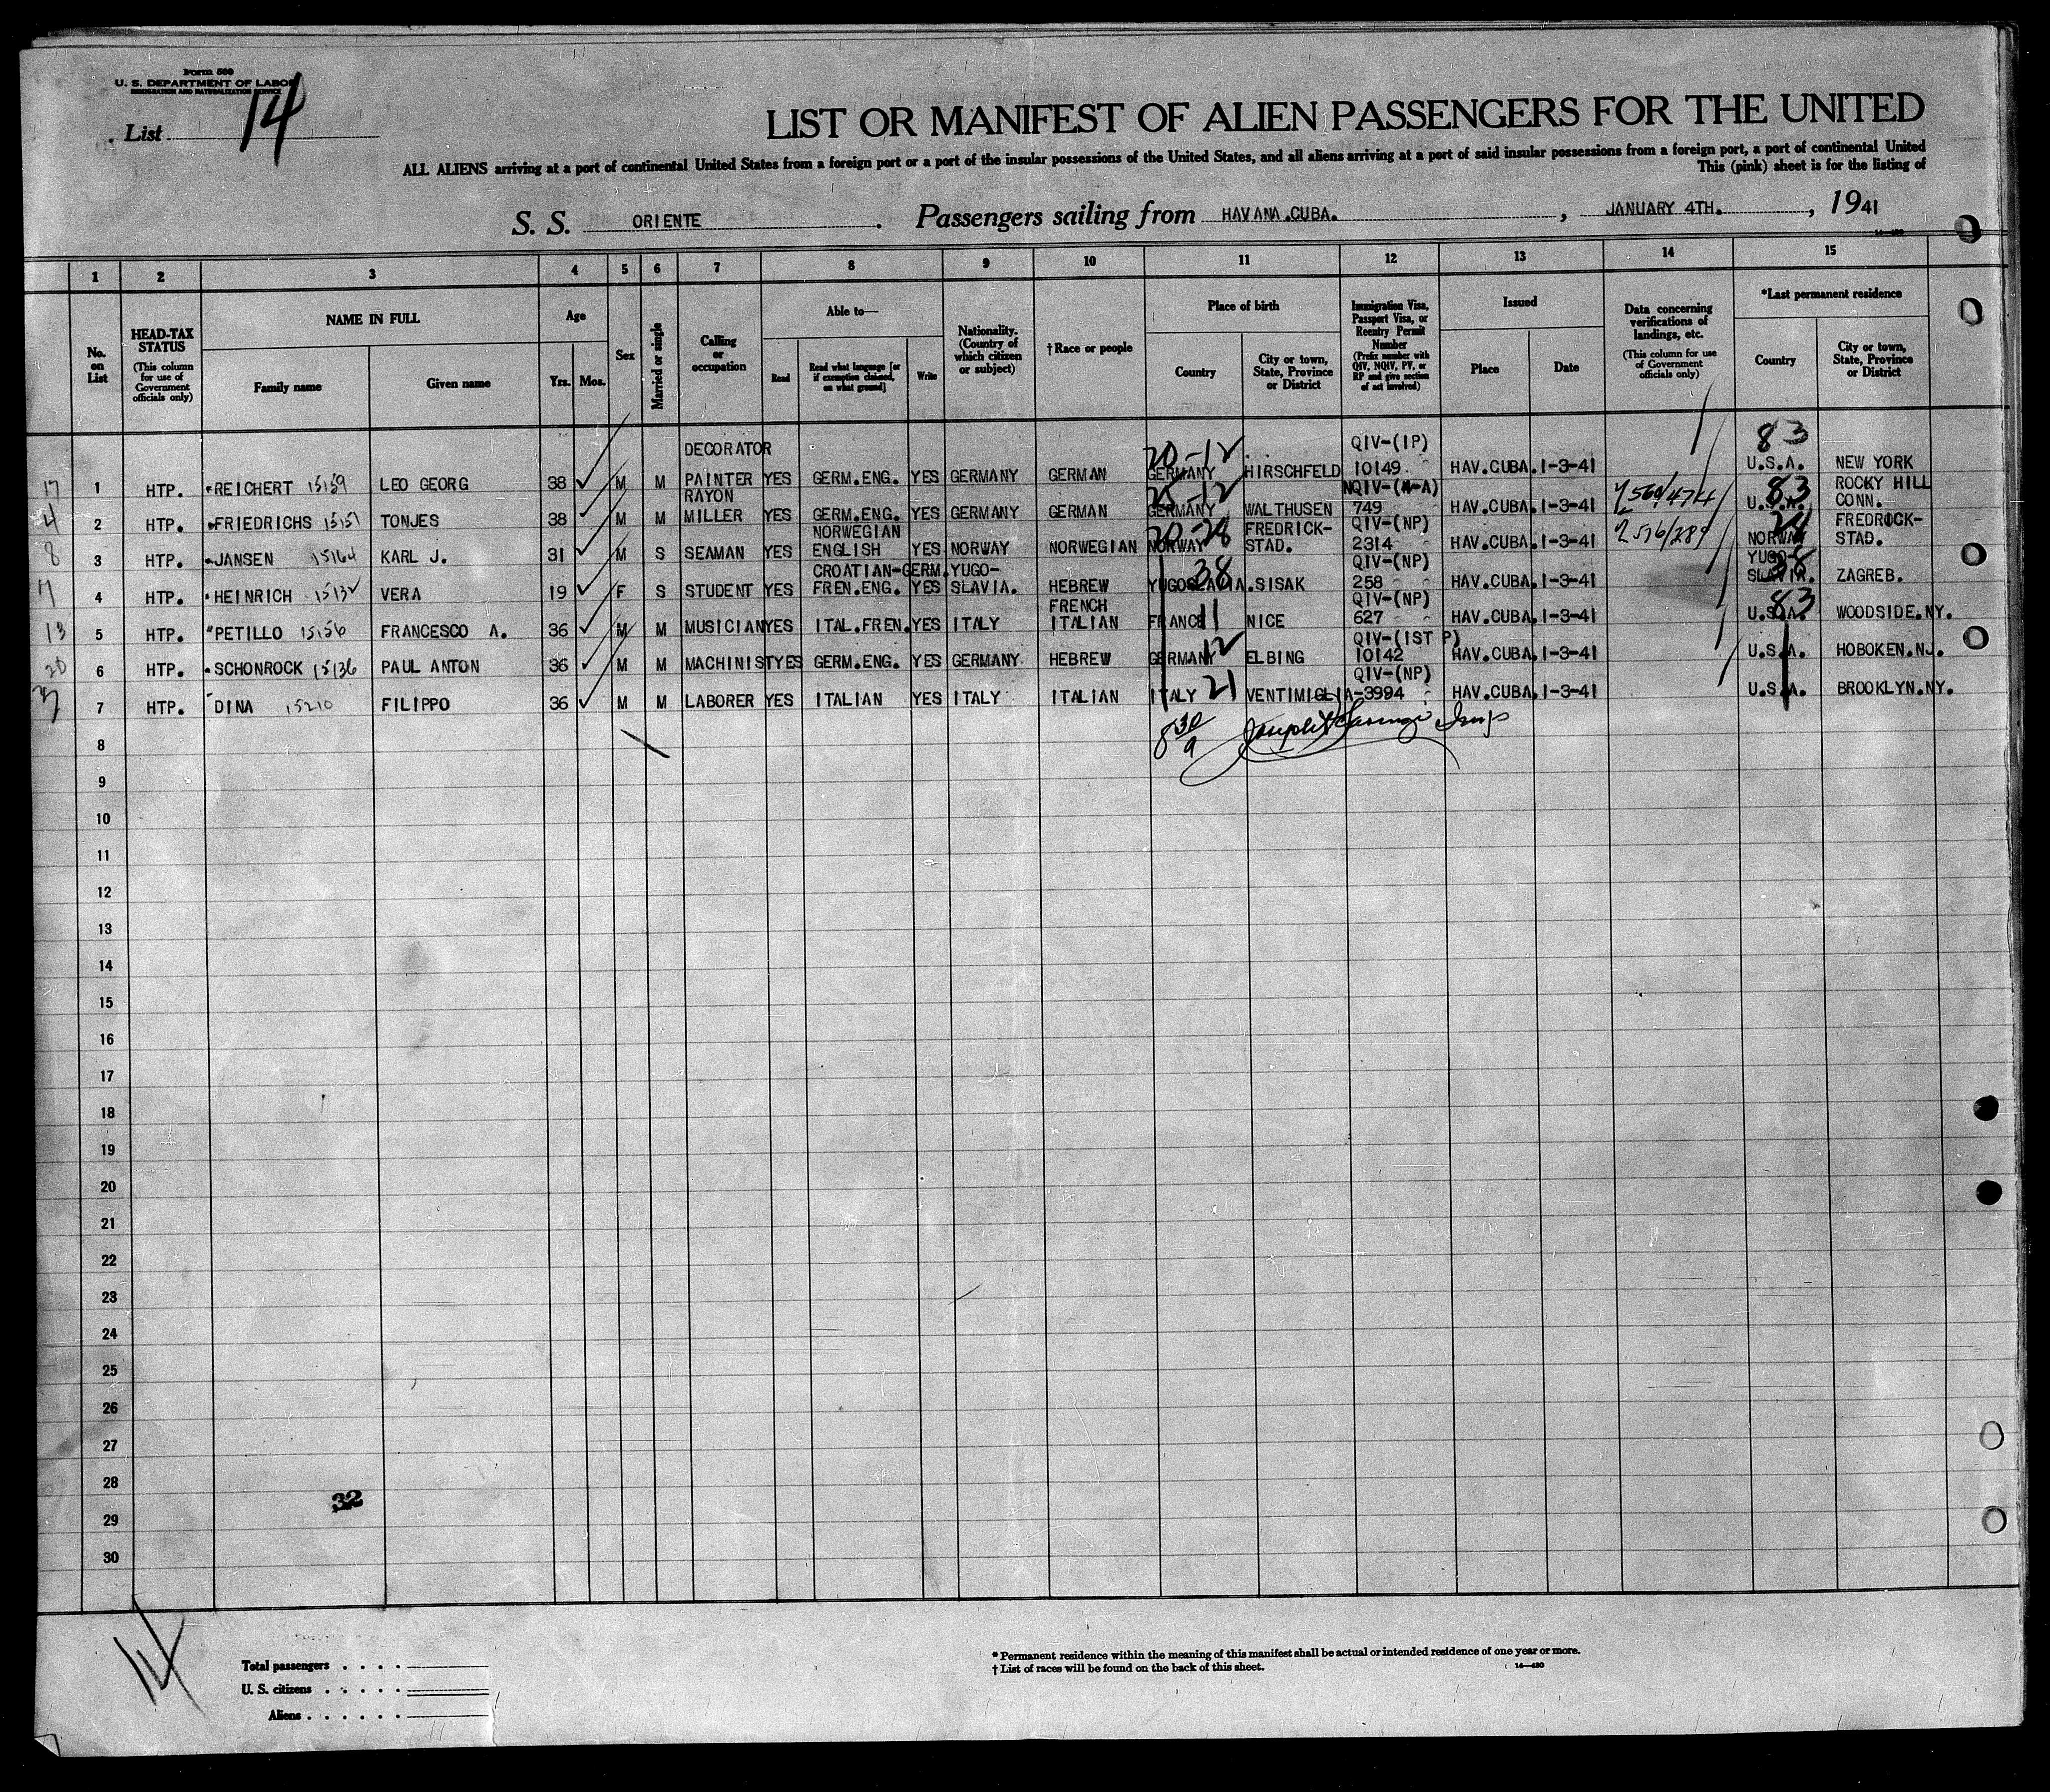 Form 500
U. S. DEPARTMENT OF LABOR
IMMIGRATION AND NATURALIZATION SERVICE
List 14
LIST OR MANIFEST OF ALIEN PASSENGERS FOR THE UNITED
ALL ALIENS arriving at a port of continental United States from a foreign port or a port of the insular possessions of the United States, and all aliens arriving at a port of said insular possessions from a foreign port, a port of continental United
This (pink) sheet is for the listing of
S. S. ORIENTE . Passengers sailing from HAVANA.CUBA. , JANUARY 4TH. , 1941
1 2 3 4 5 6 7 8 9 10 11 12 13 14 15
No. on List
HEAD-TAX STATUS (This column for use of Government officials only)
NAME IN FULL
Family name Given name
Age
Yrs. Mos.
Sex
Married or single
Calling or occupation
Able to—
Read Read what language [or if exemption claimed, on what ground] Write
Nationality. (Country of which citizen or subject)
† Race or people
Place of birth
Country City or town, State, Province or District
Immigration Visa, Passport Visa, or Reentry Permit Number (Prefix number with QIV, NQIV, PV, or RP and give section of act involved)
Issued
Place Date
Data concerning verifications of landings, etc. (This column for use of Government officials only)
*Last permanent residence
Country City or town, State, Province or District
DECORATOR 20-12 QIV-(IP) 83
17 1 HTP. REICHERT 15159 LEO GEORG 38 M M PAINTER YES GERM.ENG. YES GERMANY GERMAN GERMANY HIRSCHFELD 10149 HAV.CUBA. 1-3-41 U.S.A. NEW YORK
RAYON NQIV- 83 ROCKY HILL
4 2 HTP. FRIEDRICHS 15151 TONJES 38 M M MILLER YES GERM.ENG. YES GERMANY GERMAN GERMANY WALTHUSEN 749 HAV.CUBA. 1-3-41 U.S.A. CONN.
NORWEGIAN FREDRICK- QIV-(NP) FREDRICK-
8 3 HTP. JANSEN 15164 KARL J. 31 M S SEAMAN YES ENGLISH YES NORWAY NORWEGIAN NORWAY STAD. 2314 HAV.CUBA. 1-3-41 NORWAY STAD.
CROATIAN-GERM. YUGO- 38 QIV-(NP) YUGO- 38
4 HTP. HEINRICH 15132 VERA 19 F S STUDENT YES FREN.ENG. YES SLAVIA. HEBREW YUGOSLAVIA. SISAK 258 HAV.CUBA. 1-3-41 SLAVIA. ZAGREB.
FRENCH QIV-(NP) 83
13 5 HTP. PETILLO 15156 FRANCESCO A. 36 M M MUSICIAN YES ITAL.FREN. YES ITALY ITALIAN FRANCE 11 NICE 627 HAV.CUBA. 1-3-41 U.S.A. WOODSIDE.NY.
12 QIV-(1ST P)
20 6 HTP. SCHONROCK 15136 PAUL ANTON 36 M M MACHINIST YES GERM.ENG. YES GERMANY HEBREW GERMANY ELBING 10142 HAV.CUBA. 1-3-41 U.S.A. HOBOKEN.NJ.
QIV-(NP)
7 HTP. DINA 15210 FILIPPO 36 M M LABORER YES ITALIAN YES ITALY ITALIAN ITALY 21 VENTIMIGLIA- 3994 HAV.CUBA. 1-3-41 U.S.A. BROOKLYN.NY.
8
9
10
11
12
13
14
15
16
17
18
19
20
21
22
23
24
25
26
27
28
32
29
30
14
Total passengers . . . .
U. S. citizens . . . . .
Aliens . . . . . .
* Permanent residence within the meaning of this manifest shall be actual or intended residence of one year or more.
† List of races will be found on the back of this sheet.
14—430